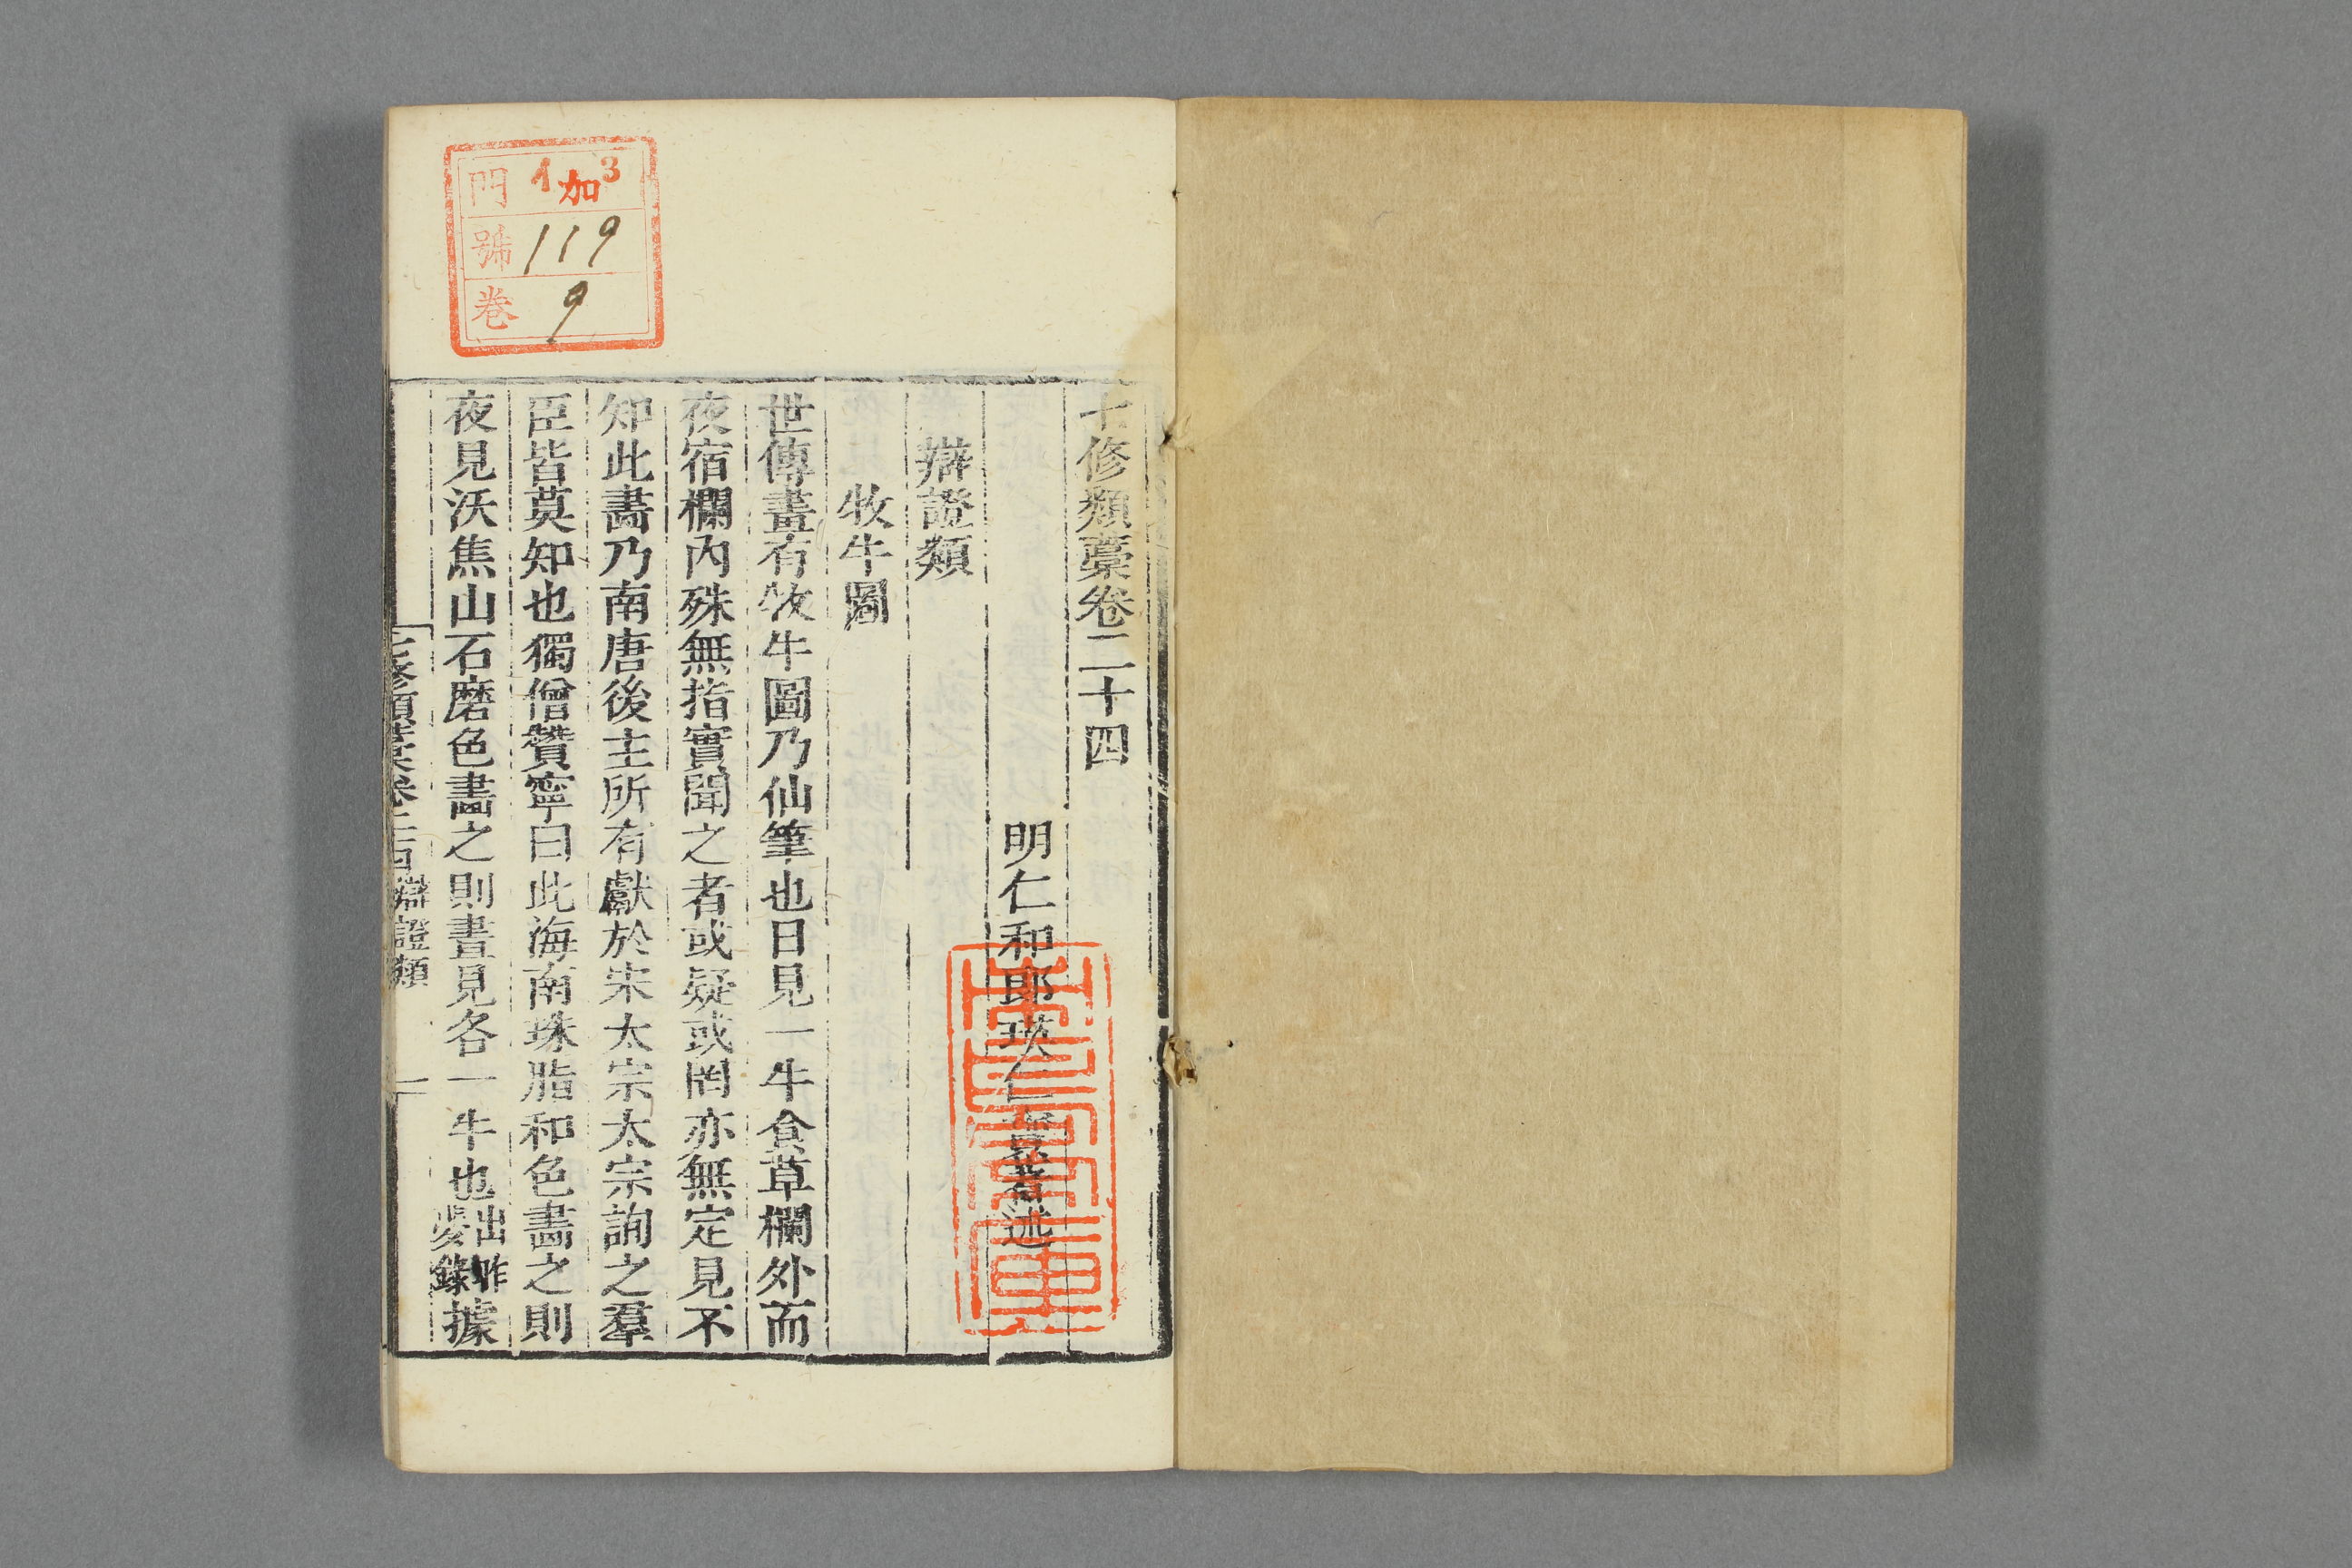 七修類藁卷二十四
明仁和郎瑛仁寶著述
辯證類
牧牛圖
世傳畫有牧牛圖乃仙筆也日見一牛食草欄外而
夜宿欄內殊無指實聞之者或疑或罔亦無定見不
知此畵乃南唐後主所有獻於宋太宗太宗詢之羣
臣皆莫知也獨僧贊寧曰此海南珠脂和色畵之則
夜見沃焦山石磨色畵之則晝見各一牛也出昨夢錄據
七修類藁卷二十四 辯證類 一
門 1加3
號 119
卷 9